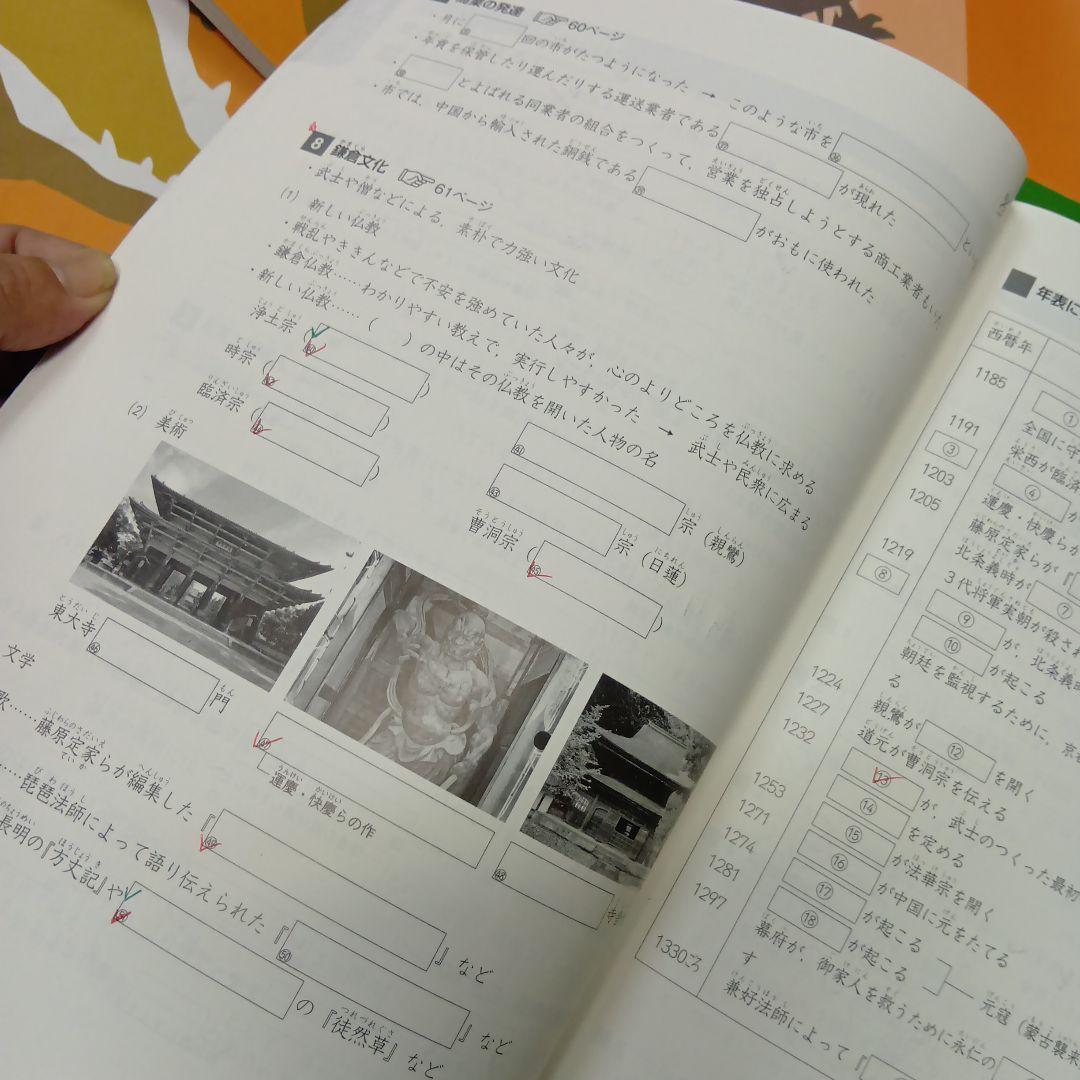 商業の発達 60ページ
・月に 回の市がたつようになった → このような市を
・年貢を保管したり運んだりする運送業者である が現れた
・ とよばれる同業者の組合をつくって、営業を独占しようとする商工業者もいた
・市では、中国から輸入された銅銭である がおもに使われた
8 鎌倉文化 61ページ
・武士や僧などによる、素朴で力強い文化
(1) 新しい仏教
・戦乱やききんなどで不安を強めていた人々が、心のよりどころを仏教に求める
・鎌倉仏教……わかりやすい教えで、実行しやすかった → 武士や民衆に広まる
・新しい仏教……( )の中はその仏教を開いた人物の名
浄土宗(㊵ ) ㊶ 宗(親鸞)
時宗(㊷ ) ㊸ 宗(日蓮)
臨済宗(㊹ ) 曹洞宗(㊺ )
(2) 美術
東大寺 ㊻ 門
㊼
運慶・快慶らの作
㊽ 寺
文学
歌……藤原定家らが編集した『㊾ 』など
……琵琶法師によって語り伝えられた『㊿ 』など
長明の『方丈記』や の『徒然草』など
年表に
西暦年
1185 ①
全国に守
1191 栄西が臨済
③ ④ が
1203 運慶・快慶らが
1205 藤原定家らが『
北条義時が ⑦
1219 3代将軍実朝が殺され
⑧ ⑨ が、北条義時
⑩ が起こる
朝廷を監視するために、京都
る
1224 親鸞が ⑫ を開く
1227 道元が曹洞宗を伝える
1232 ⑬ が、武士のつくった最初
⑭ を定める
1253 ⑮ が法華宗を開く
1271 ⑯ が中国に元をたてる
1274 ⑰ が起こる
1281 ⑱ が起こる 元寇(蒙古襲来
1297 幕府が、御家人を救うために永仁の
す
1330ごろ 兼好法師によって『